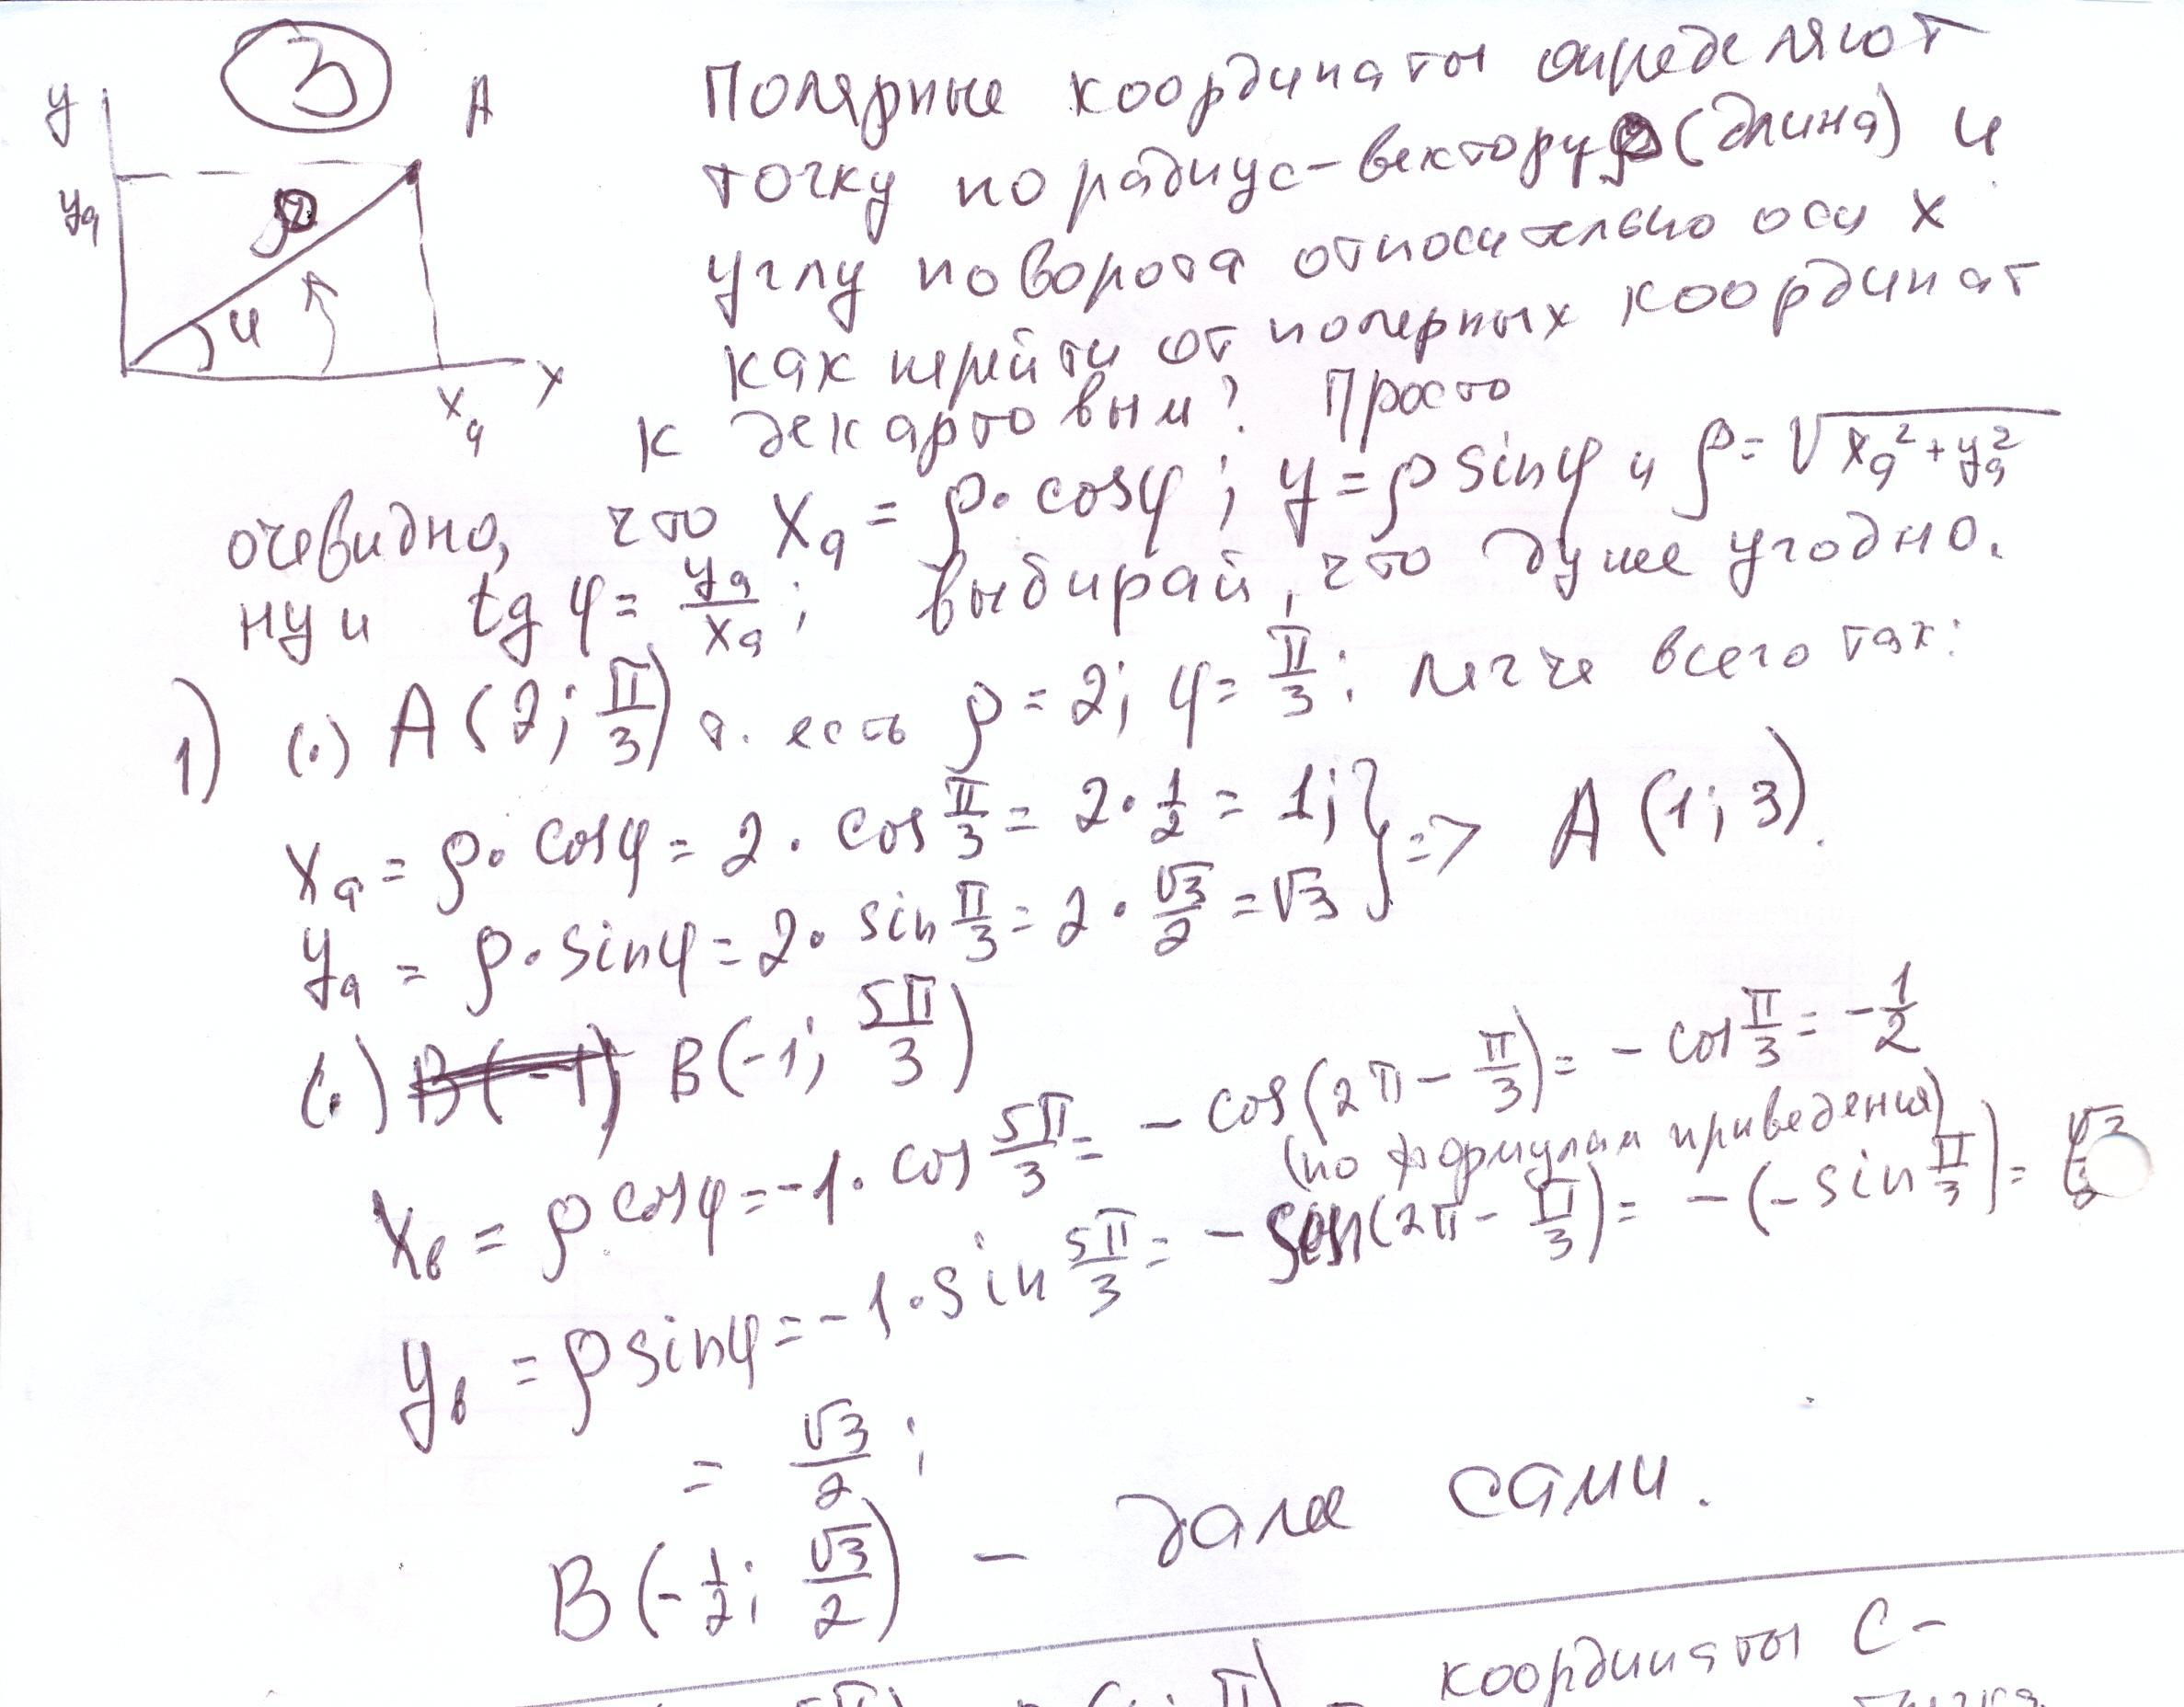 3
y
A
Полярные координаты определяют
точку по радиус-вектору ρ (длина) и
yₐ
ρ
углу поворота относительно оси x
φ
как перейти от полярных координат
x
xₐ
к декартовым? Просто
очевидно, что xₐ = ρ · cosφ ; y = ρ sinφ и ρ = √(xₐ² + yₐ²)
ну и tg φ = yₐ/xₐ ; выбирай, что душе угодно.
1) (·) A (2; π/3) т. есть ρ = 2; φ = π/3; легче всего так:
xₐ = ρ · cosφ = 2 · cos π/3 = 2 · 1/2 = 1; } => A (1; 3).
yₐ = ρ · sinφ = 2 · sin π/3 = 2 · √3/2 = √3
(·) B(-1) B(-1; 5π/3)
x_в = ρ cosφ = -1 · cos 5π/3 = - cos(2π - π/3) = - cos π/3 = - 1/2
(по формулам приведения)
y_в = ρ sinφ = -1 · sin 5π/3 = - sin(2π - π/3) = - (- sin π/3) = √3/2
= √3/2 ;
B (- 1/2; √3/2) – далее сами.
координаты С -